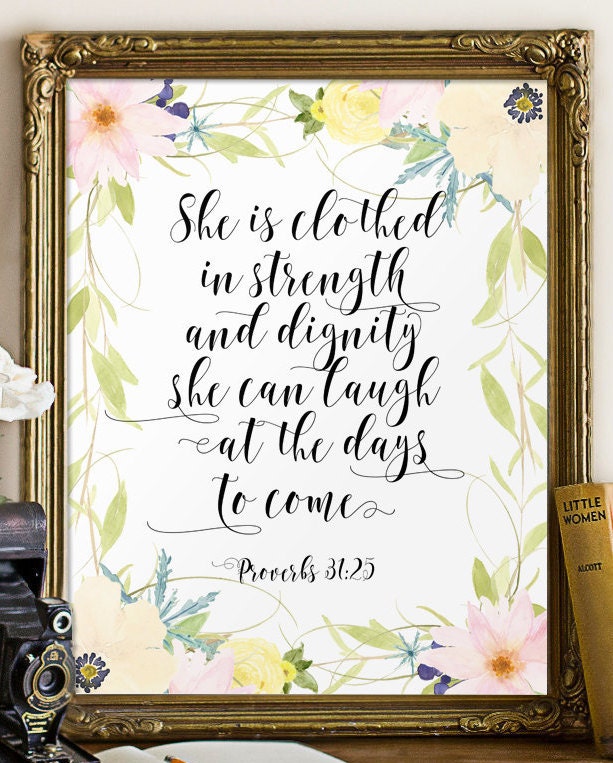 She is clothed
in strength
and dignity
she can laugh
at the days
to come
Proverbs 31:25
LITTLE
WOMEN
ALCOTT